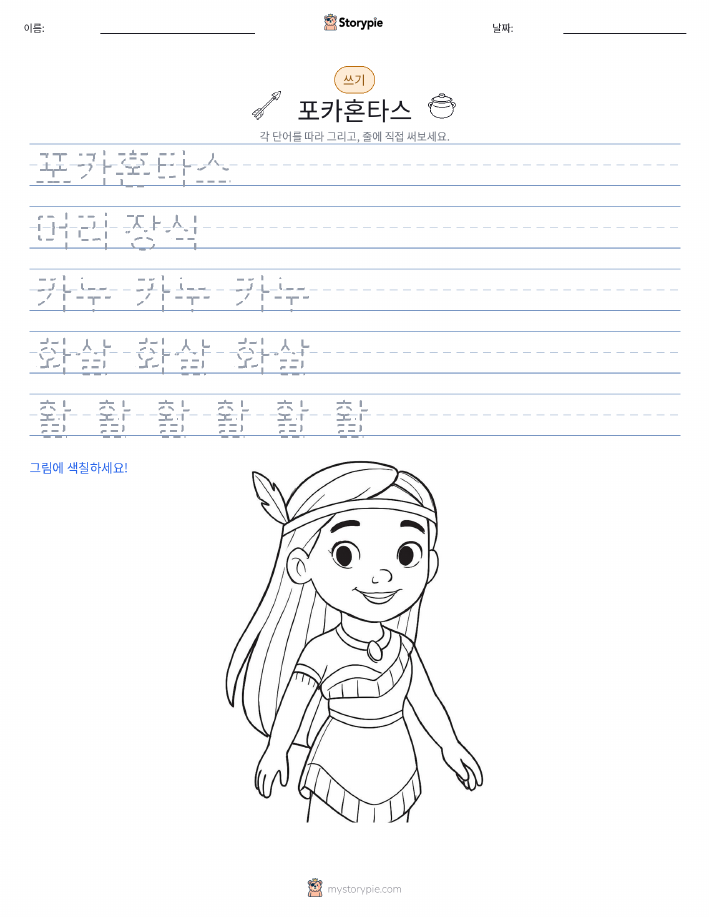 이름:
Storypie
날짜:
쓰기
포카혼타스
각 단어를 따라 그리고, 줄에 직접 써보세요.
포카혼타스
머리 장식
카누 카누 카누
화살 화살 화살
활 활 활 활 활 활
그림에 색칠하세요!
mystorypie.com